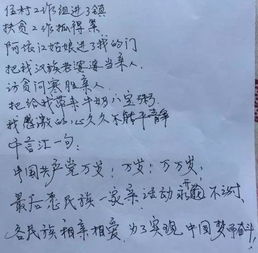 住村工作组进了镇
扶贫工作抓得紧
阿依江姑娘进了我的门
把我汉族老婆婆当亲人
访贫问寒胜亲人
把给我带来牛奶八宝粥
我感激的心久久不能平静
千言汇一句:
中国共产党万岁!万岁!万万岁!
最后愿民族一家亲活动永不过时
各民族相亲相爱,为了实现中国梦而奋斗!